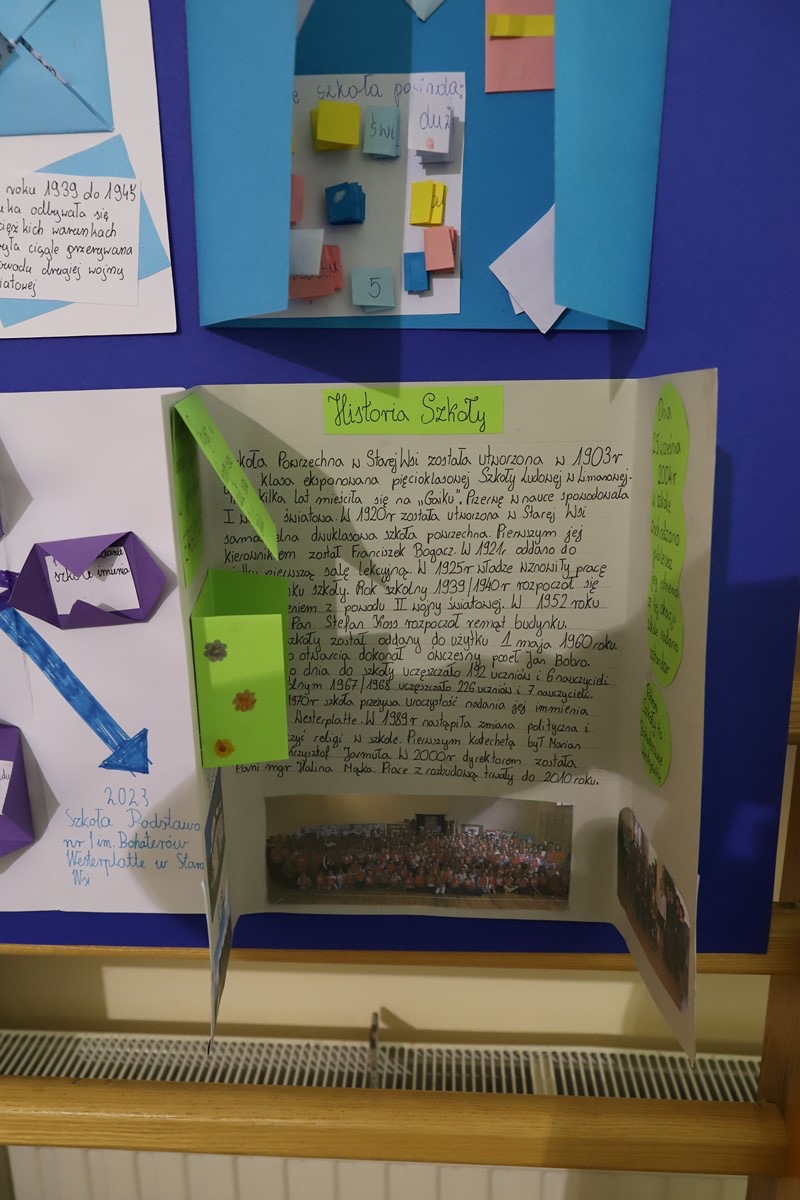 szkoła posiada:
świ
duż
5
roku 1939 do 1945
uka odbywała się
ciężkich warunkach
była ciągle przerywana
powodu drugiej wojny
iatowej
Historia Szkoły
koła Powrzechna w Starej Wsi została utworzona w 1903r
klasa eksponowana pięcioklasowej Szkoły Ludowej w Limanowej.
kilka lat mieściła się na „Gaiku". Przerwę w nauce spowodowała
I w światowa. W 1920r została utworzona w Starej Wsi
samo elna dwuklasowa szkoła powrzechna. Pierwszym jej
kierownikiem został Franciszek Bogacz. W 1921r oddano do
pierwszą salę lekcyjną. W 1925r władze wznowiły pracę
ku szkoły. Rok szkolny 1939/1940r rozpoczął się
eniem z powodu II wojny światowej. W 1952 roku
Pan Stefan Koss rozpoczął remąt budynku.
zkoły został oddany do użytku 1 maja 1960roku.
o otwarcia dokonał ówczesny poseł Jan Bobro.
o dnia do szkoły uczęszczało 192 uczniów i 6 nauczycieli
olnym 1967/1968 uczęszczało 226 uczniów i 7 nauczycieli.
1970r szkoła przeżywa uroczystość nadania jej immienia
Westerplatte. W 1989r nastąpiła zmiana polityczna i
zyć religi w szkole. Pierwszym katechetą był Marian
rzysztof Jarmuła W 2000r dyrektorem została
Pani mgr Halina Mąka. Prace z rozbudową trwały do 2010roku.
Dnia
2004r
w szkole
szkole nadano
sztandar
szkoły
imienia
2023
Szkoła Podstawo
nr 1 im. Bohaterów
Westerplatte w Stare
Wsi